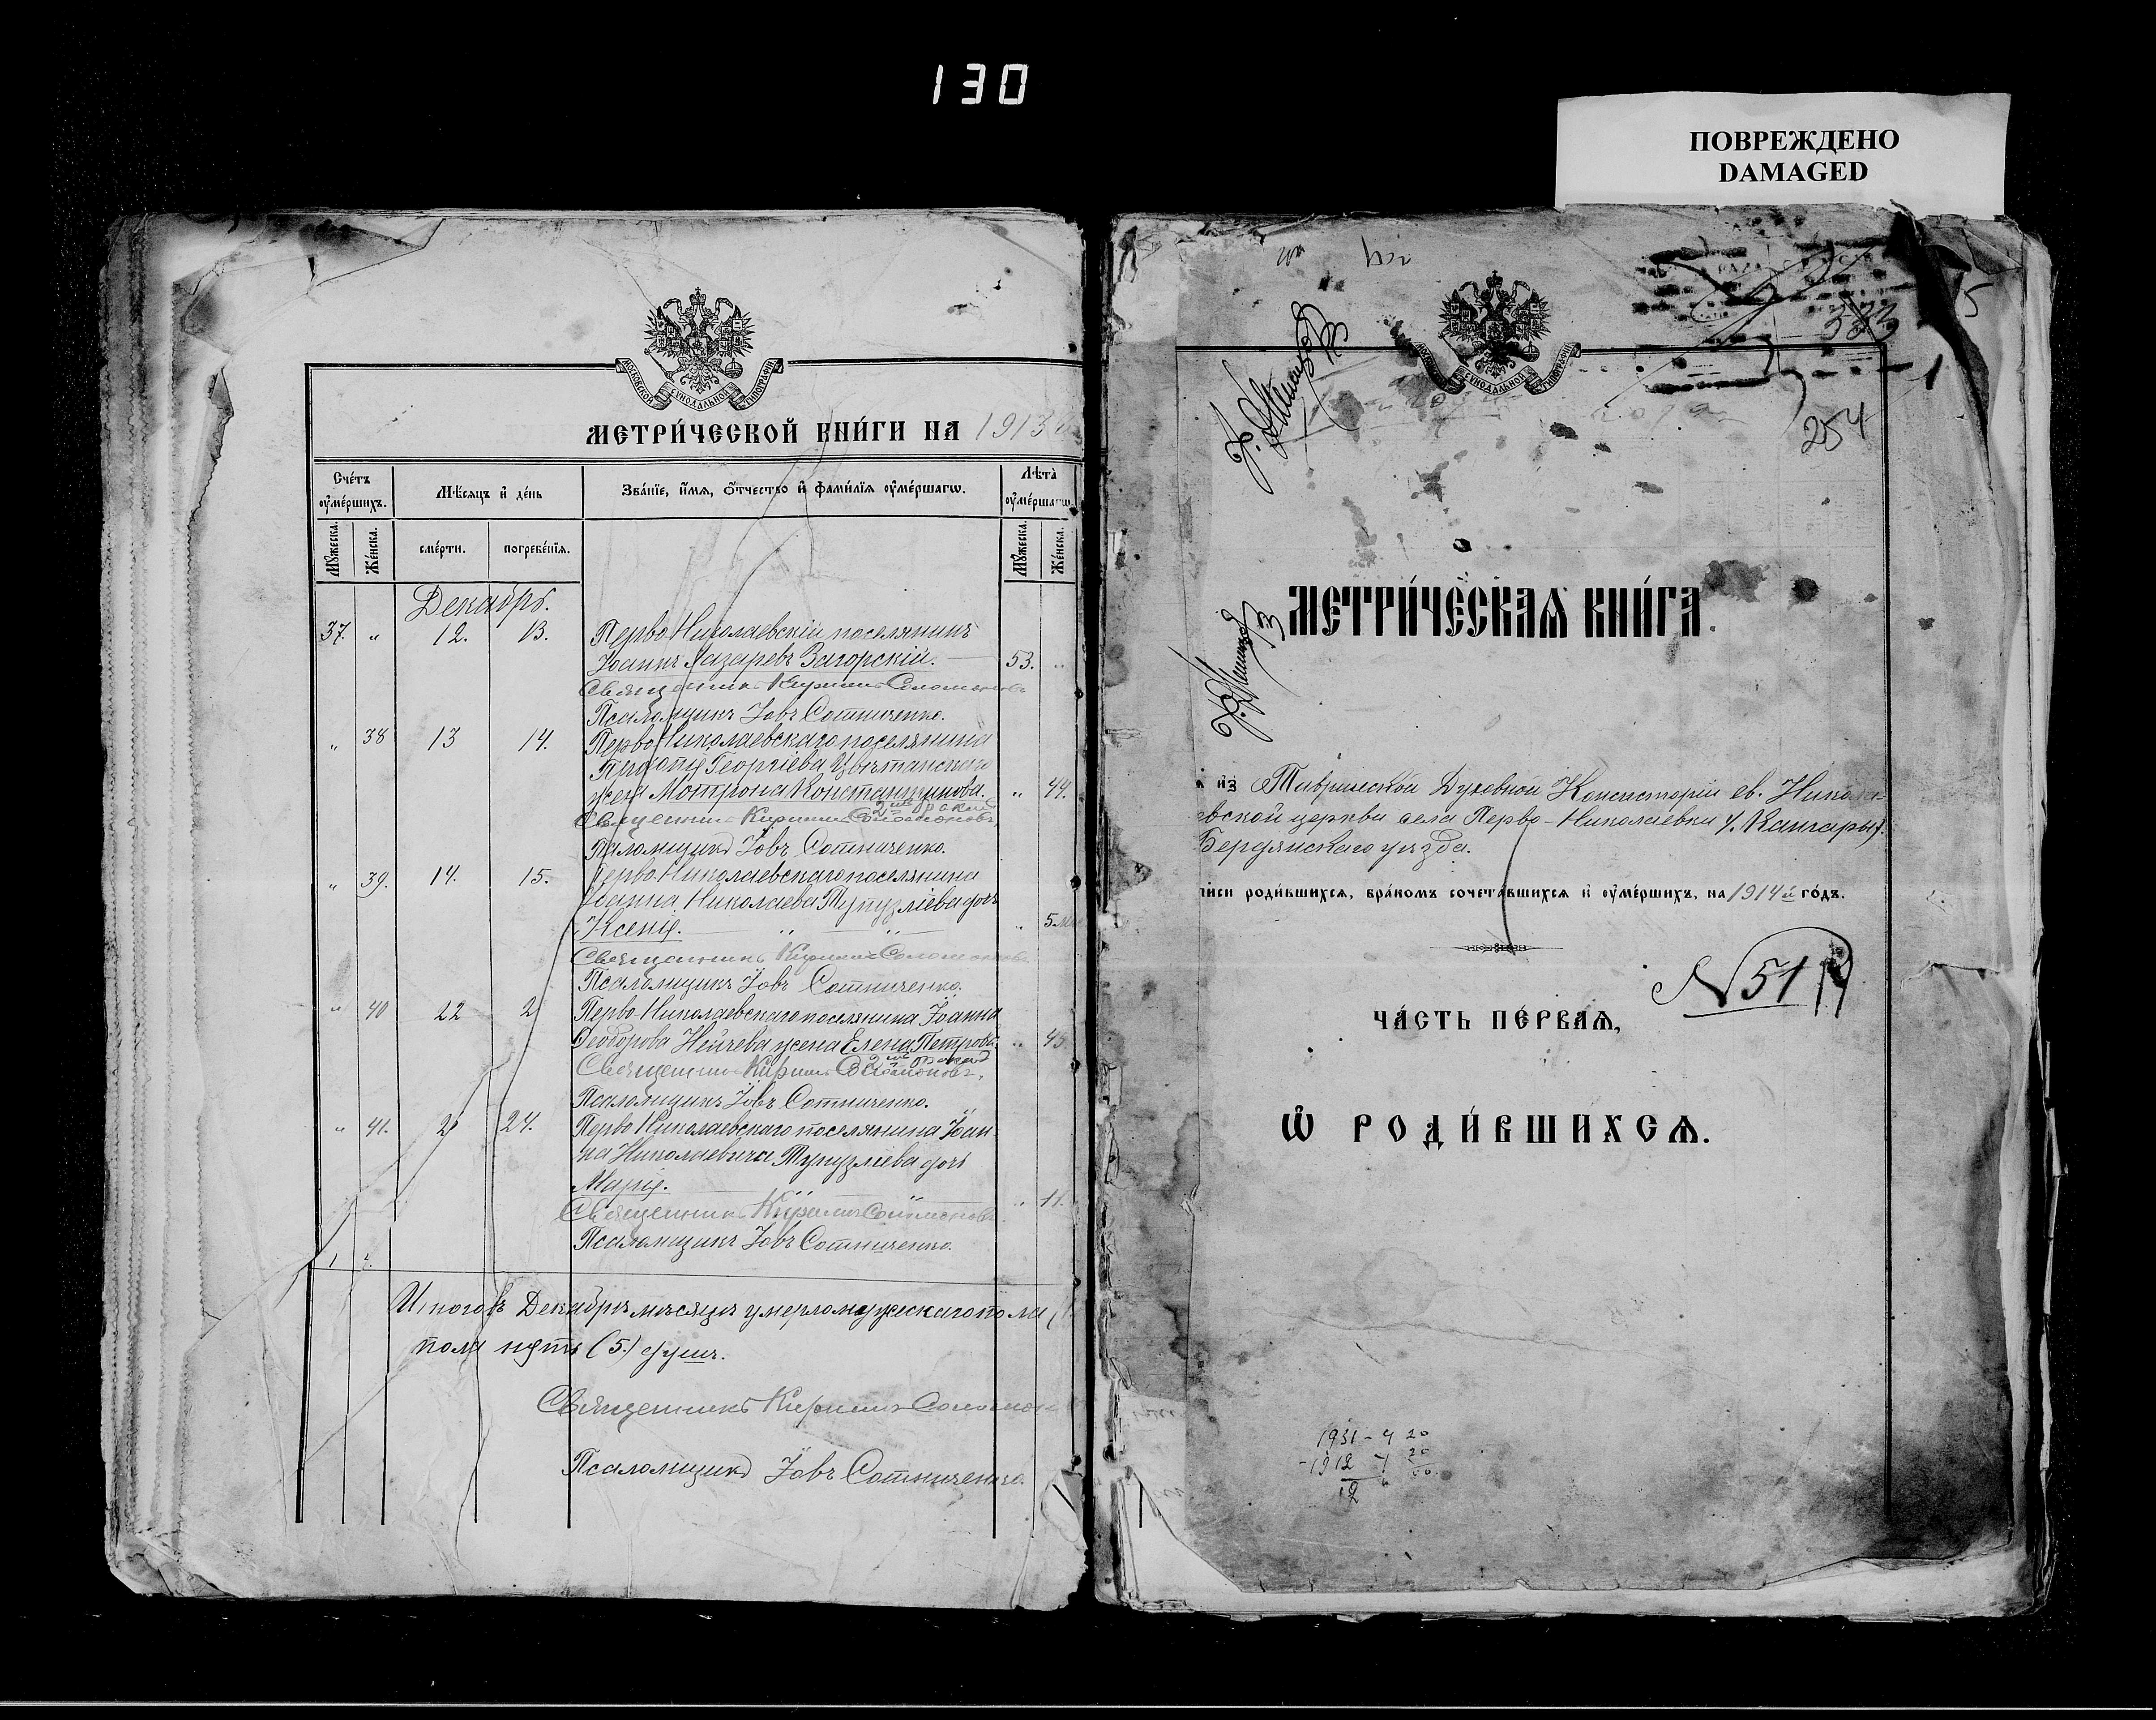 130
ПОВРЕЖДЕНО
DAMAGED
МОСКОВСКОЙ СѴНОДАЛЬНОЙ ТИПОГРАФІИ
МЕТРИ́ЧЕСКОЙ КНИ́ГИ НА 1913
Сче́тъ ᲂу҆ме́ршихъ.
Мѣ́сяцъ и҆ де́нь
Зва́нїе, и҆́мѧ, ѻ҆́тчество и҆ фами́лїѧ ᲂу҆ме́ршагѡ.
Лѣ́та ᲂу҆ме́ршагѡ.
Мꙋ́жеска.
Же́нска.
сме́рти.
погребе́нїѧ.
Мꙋ́жеска.
Же́нска.
Декабрь.
37. " 12. 13. Перво Николаевскій поселянинъ
Іоаннъ Лазаревъ Загорскій. 53. "
Священникъ Кириллъ Соломоновъ
Псаломщикъ Іовъ Сотниченко.
" 38 13 14. Перво Николаевскаго поселянина
Георгіева
жена Мотрона Константинова. " 44.
2 ше браки
Священникъ Кириллъ Соломоновъ,
Псаломщикъ Іовъ Сотниченко.
" 39. 14. 15. Перво Николаевскаго поселянина
Іоанна Николаева Тупузліева дочь
Ксенія. " 5 м
Священникъ Кириллъ Соломоновъ
Псаломщикъ Іовъ Сотниченко.
" 40 22 2 Перво Николаевскаго поселянина Іоанна
Ѳеодорова Нейчева жена Елена Петрова "
Священникъ Кириллъ Соломоновъ,
Псаломщикъ Іовъ Сотниченко.
" 41. 2 24. Перво Николаевскаго поселянина Іоан-
на Николаевича Тупузліева дочь
Марія. " 11.
Священникъ Кириллъ Соломоновъ
Псаломщикъ Іовъ Сотниченко.
Итого въ Декабрѣ мѣсяцѣ умерло мужескаго пола
пола пять (5.) душъ.
Священникъ Кириллъ Соломоновъ
Псаломщикъ Іовъ Сотниченко.
5
382
1
254
МОСКОВСКОЙ СѴНОДАЛЬНОЙ ТИПОГРАФІИ
МЕТРИ́ЧЕСКАѦ КНИ́ГА.
из Таврической Духовной Консисторіи св. Никола-
евской церкви села Перво-Николаевки ч. Кангары).
Бердянскаго уѣзда.
писи роди́вшихсѧ, бра́комъ сочета́вшихсѧ и҆ ᲂу҆ме́ршихъ, на 1914й го́дъ.
N 51
ЧА́СТЬ ПЕ́РВАѦ,
Ѽ РОДИ́ВШИХСѦ.
1931 - 4 20
-1912 4 20
12